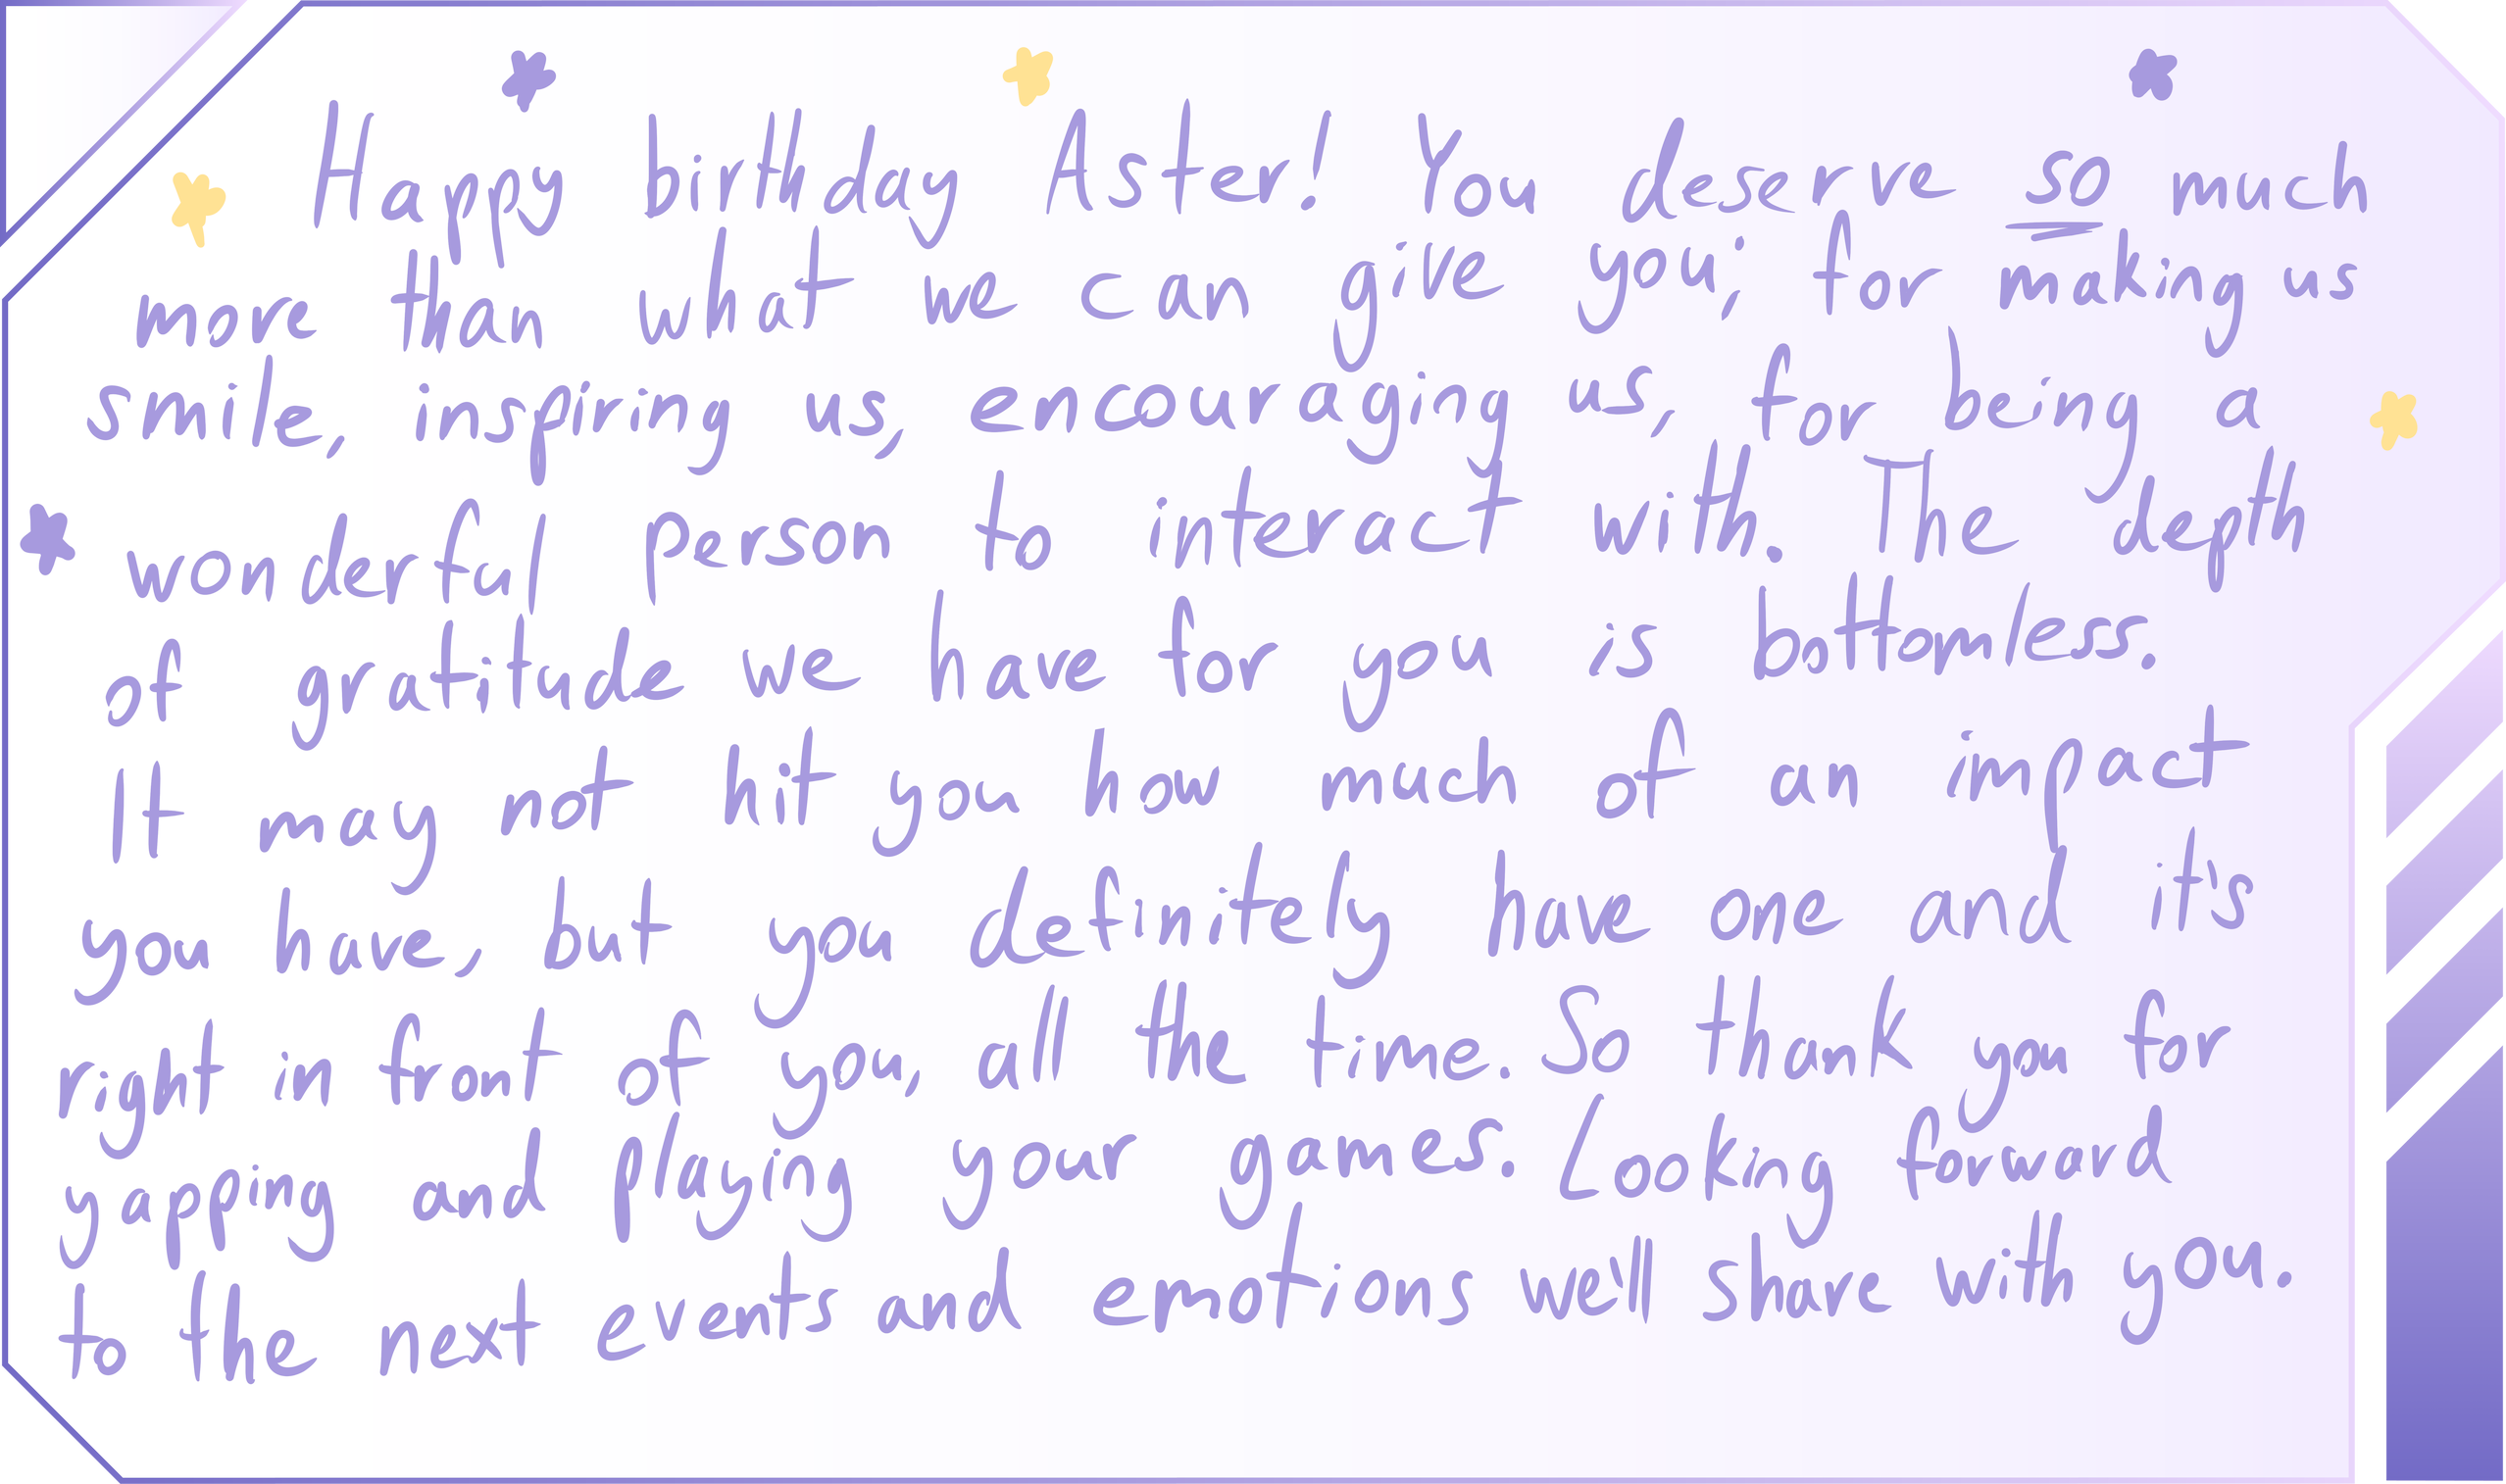 Happy birthday Aster! You deserve so much
more than what we can give you; for making us
smile, inspiring us, encouraging us, for being a
wonderful person to interact with. The depth
of gratitude we have for you is bottomless.
It may not hit you how much of an impact
you have, but you definitely have one and it's
right in front of you, all the time. So thank you for
yapping and playing your games. Looking forward
to the next events and emotions we'll share with you.